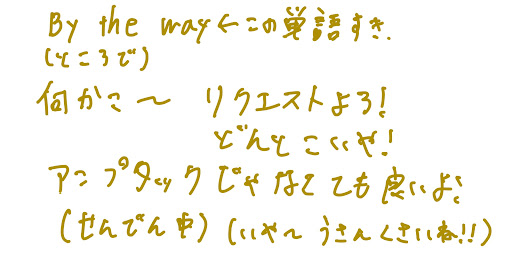 By the way←この単語すき.
(ところで)
何かこ〜 リクエストよろ!
どんとこいや!
アンプタックじゃなくても良いよ!
(せんでん中) (いや〜うさんくさいね!!)